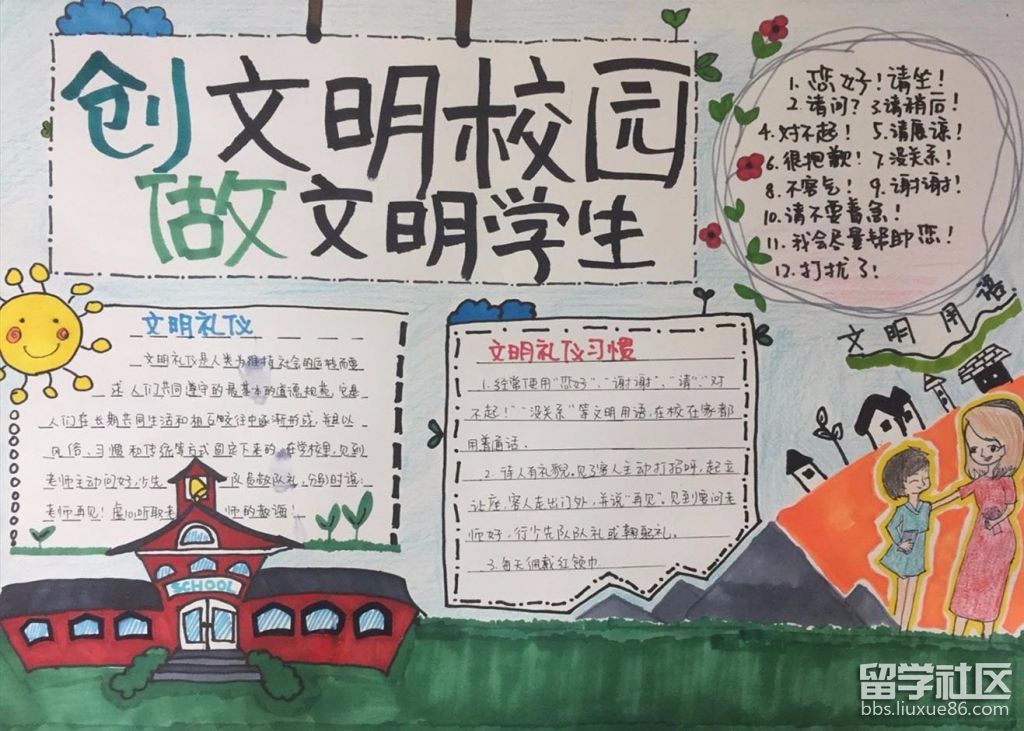 创文明校园
做文明学生
1.您好！请坐！
2.请问？3.请稍后！
4.对不起！5.请原谅！
6.很抱歉！7.没关系！
8.不客气！9.谢谢！
10.请不要着急！
11.我会尽量帮助您！
12.打扰了！
文明用语
文明礼仪
文明礼仪是人类为维持社会的运转而要
求人们共同遵守的最基本的道德规范，它是
人们在长期共同生活和相互交往中逐渐形成，并且以
风俗、习惯和传统等方式固定下来的。在学校里，见到
老师主动问好，少先 队员敬队礼，分别时说：
老师再见！虚心听取老 师的教诲！
SCHOOL
文明礼仪习惯
1.经常使用“您好”、“谢谢”、“请”“对
不起！”“没关系”等文明用语，在校在家都
用普通话．
2.待人有礼貌，见了客人主动打招呼，起立
让座，客人走出门外，并说“再见”。见到要问老
师好，行少先队队礼或鞠躬礼。
3.每天佩戴红领巾
留学社区
bbs.liuxue86.com